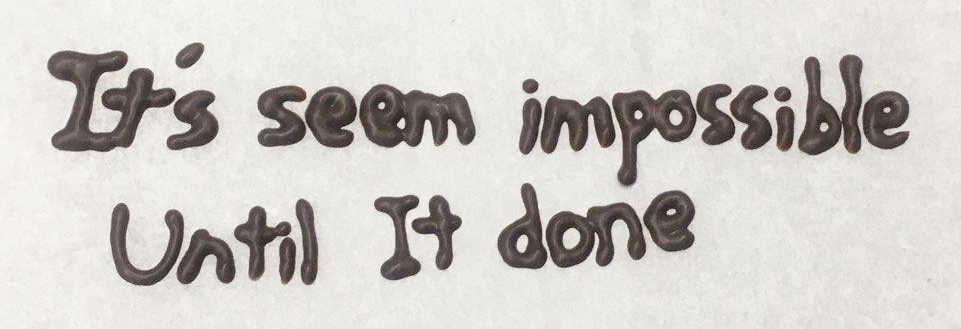 It's seem impossible
Until It done